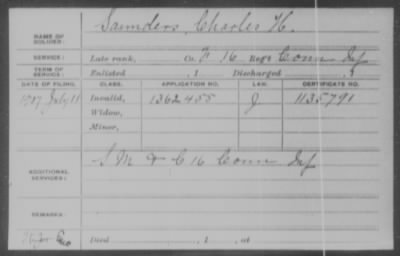 NAME OF SOLDIER: Saunders, Charles H.
SERVICE: Late rank, Co. F 16 Reg't Conn Inf
TERM OF SERVICE: Enlisted , 1 Discharged , 1
DATE OF FILING. CLASS. APPLICATION NO. LAW. CERTIFICATE NO.
July 11 Invalid, 1362455 J 1135791
Widow,
Minor,
ADDITIONAL SERVICES: S M & C 16 Conn Inf
REMARKS:
Died , 1 , at